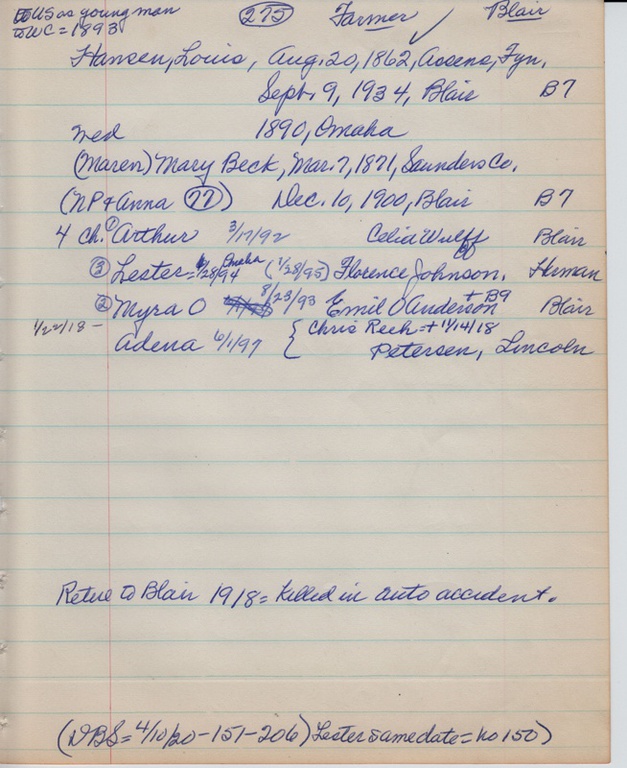 to US as young man (275) Farmer ✓ Blair
to WC = 1893
Hansen, Louis, Aug. 20, 1862, Assens, Fyn,
Sept. 9, 1934, Blair B7
wed 1890, Omaha
(Maren) Mary Beck, Mar. 7, 1871, Saunders Co.
(NP & Anna (77)) Dec. 10, 1900, Blair B7
4 ch. (1) Arthur 3/17/92 Celia Wulff Blair
Omaha
(3) Lester = 1/28/94 (1/28/95) Florence Johnson. Herman
(2) Myra O 8/23/93 Emil O Anderson + B9 Blair
1/22/18 - { Chris Reeh = + 11/14/18
Adena 6/1/97 Petersen, Lincoln
Retire to Blair 1918 = killed in auto accident.
(DBS = 4/10/20 - 151 - 206) Lester same date = no 150)